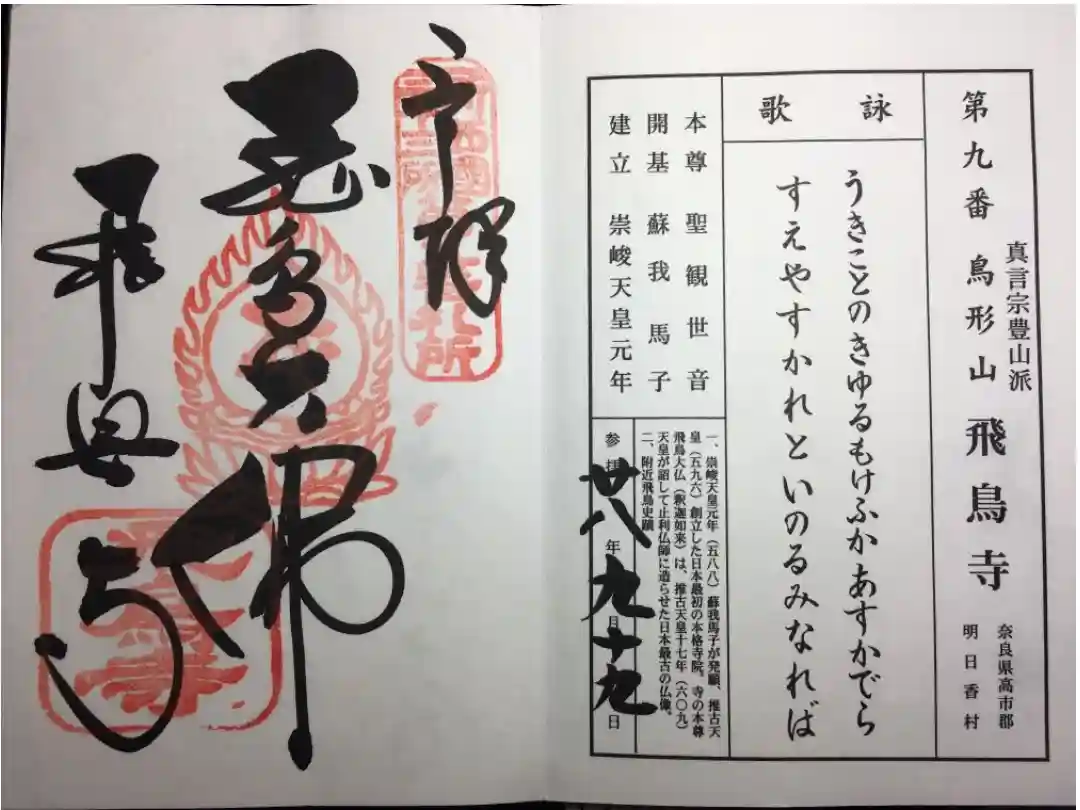 真言宗豊山派
第九番 鳥形山 飛鳥寺
奈良県高市郡
明日香村
詠歌
うきことのきゆるもけふかあすかでら
すえやすかれといのるみなれば
本尊 聖観世音
開基 蘇我馬子
建立 崇峻天皇元年
一、崇峻天皇元年（五八八）蘇我馬子が発願、推古天
皇（五九六）創立した日本最初の本格寺院。寺の本尊
飛鳥大仏（釈迦如来）は、推古天皇十七年（六〇九）
天皇が詔して止利仏師に造らせた日本最古の仏像。
二、附近飛鳥史蹟
参拝 廿八年九月十九日
奉拝
飛鳥大佛
飛鳥寺